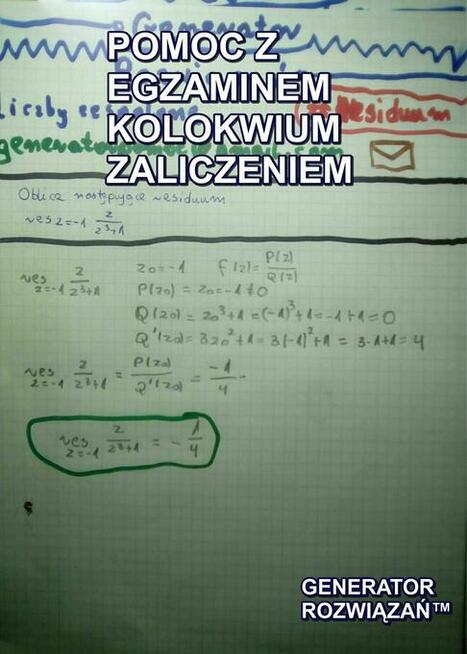 Generator
POMOC Z
EGZAMINEM
KOLOKWIUM
ZALICZENIEM
Liczby zespolone
#Residuum
Oblicz następujące residuum
res z=-1 z/(z³+1)
res z=-1 z/(z³+1) z0=-1 f(z)=P(z)/Q(z)
P(z0)=z0=-1≠0
Q(z0)=z0³+1=(-1)³+1=-1+1=0
Q'(z0)=3z0²+1=3(-1)²+1=3·1+1=4
res z=-1 z/(z³+1) = P(z0)/Q'(z0) = -1/4
res z=-1 z/(z³+1) = -1/4
GENERATOR
ROZWIĄZAŃ™